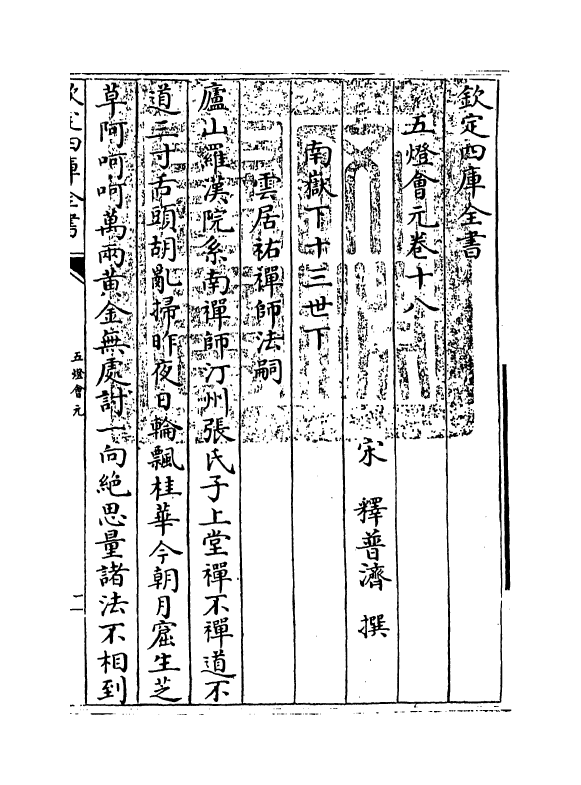 欽定四庫全書
五燈會元卷十八
宋 釋普濟 撰
南嶽下十三世下
雲居祐禪師法嗣
廬山羅漢院系南禪師汀州張氏子上堂禪不禪道不
道三寸舌頭胡亂掃昨夜日輪飄桂華今朝月窟生芝
草阿呵呵萬兩黃金無處討一向絶思量諸法不相到
欽定四庫全書
五燈會元